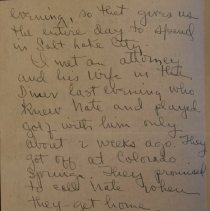 evening, so that gives us
the entire day to spend
in Salt Lake City.
I met an attorney
and his wife in the
Diner last evening who
knew Nate and played
golf with him only
about 2 weeks ago. They
got off at Colorado
Springs. They promised
to call Nate when
they get home